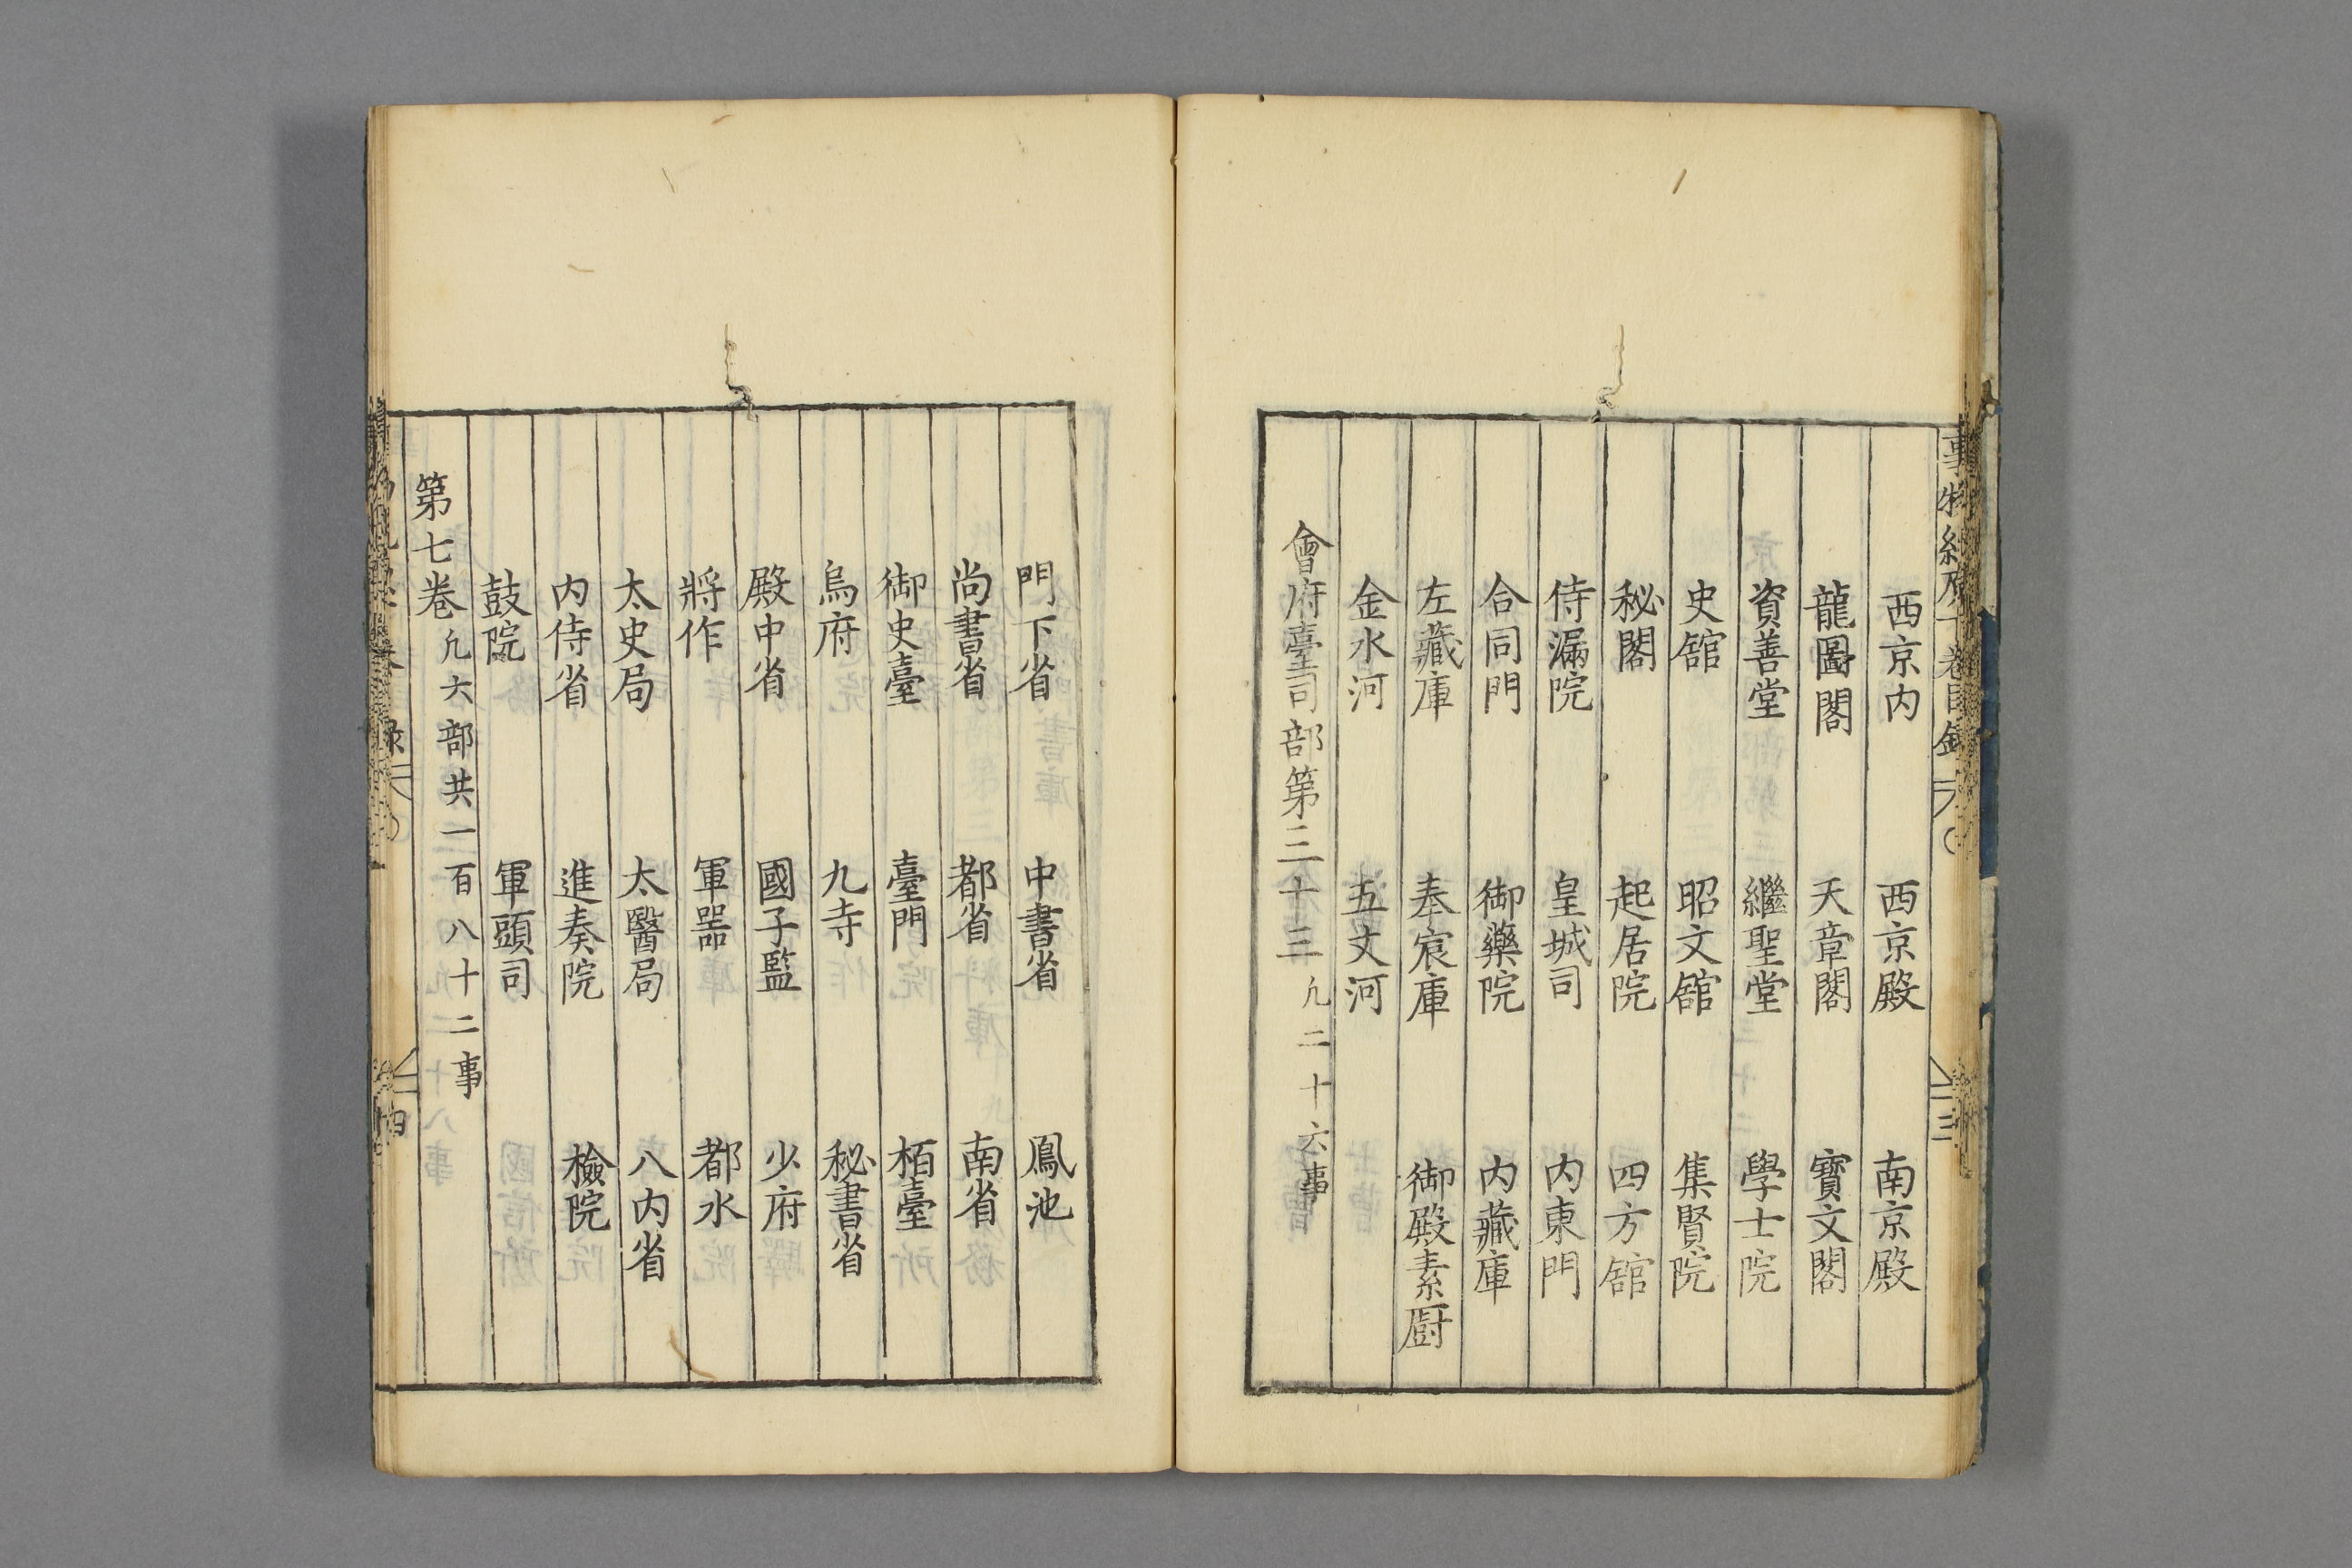 西京内 西京殿 南京殿
龍圖閣 天章閣 寳文閣
資善堂 繼聖堂 學士院
史舘 昭文舘 集賢院
秘閣 起居院 四方舘
侍漏院 皇城司 内東門
合同門 御藥院 内藏庫
左藏庫 奉宸庫 御殿素厨
金水河 五丈河
會府臺司部第三十三 凢二十六事
門下省 中書省 鳳池
尚書省 都省 南省
御史臺 臺門 栢臺
烏府 九寺 秘書省
殿中省 國子監 少府
將作 軍噐 都水
太史局 太醫局 八内省
内侍省 進奏院 檢院
鼓院 軍頭司
第七卷 凢六部共一百八十二事